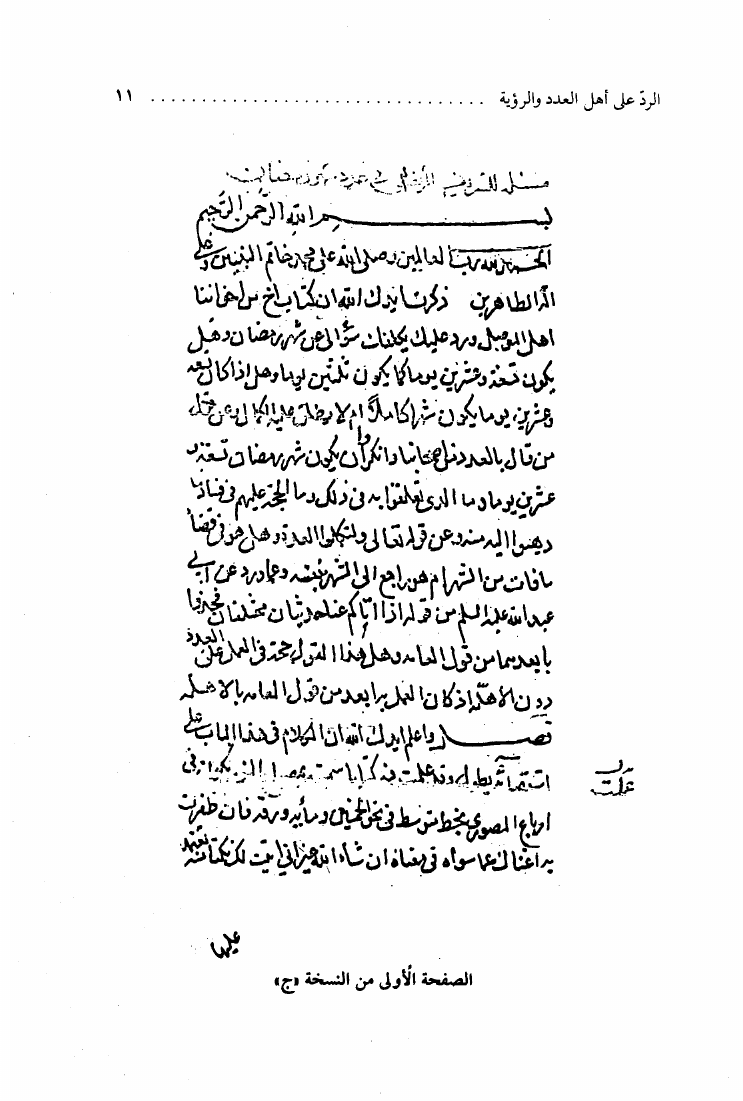 الردّ على أهل العدد والرؤية ................................ ١١
مسئلة للشريف المرتضى في عدد شهر رمضان
بسم الله الرحمن الرحيم
الحمد لله رب العالمين وصلى الله على محمد خاتم النبيين وعلى
آله الطاهرين ذكرت ايدك الله ان كتاب اخ من اخواننا
اهل الموصل ورد عليك يكلفك سؤالي عن شهر رمضان وهل
يكون تسعة وعشرين يوما كما يكون ثلثين يوما وهل اذا كان تسعة
وعشرين يوما يكون شهرا كاملا ام لا يطلق عليه الكمال وعن
من قال بالعدد من اصحابنا وانكر ان يكون شهر رمضان تسعة و
عشرين يوما وما الذي تعلقوا به في ذلك وما الحجة عليهم في فساد ما
ذهبوا اليه منه وعن قوله تعالى ولتكملوا العدة وهل هو في قضاء
ما فات من الشهر ام هو راجع الى الشهر نفسه وعما ورد عن ابي
عبد الله عليه السلم من قوله اذا اتاكم عنا حديثان مختلفان فخذوا
بابعدهما من قول العامة وهل هذا القول حجة في العمل على العدد
دون الاهلة اذ كان العمل به ابعد من قول العامة بالاهلة
فصل واعلم ايدك الله ان الكلام في هذا الباب على
استقصائه يطول وقد علمت فيه كتابا
علت
ارباع المصوري بخط متوسط في نحو الخمسين ومأية ورقة فان ظفرت
به اغناك عما سواه في معناه ان شاء الله غير اني اثبت لك نكتا منه تعتمد
عليها
الصفحة الأولى من النسخة «ج»